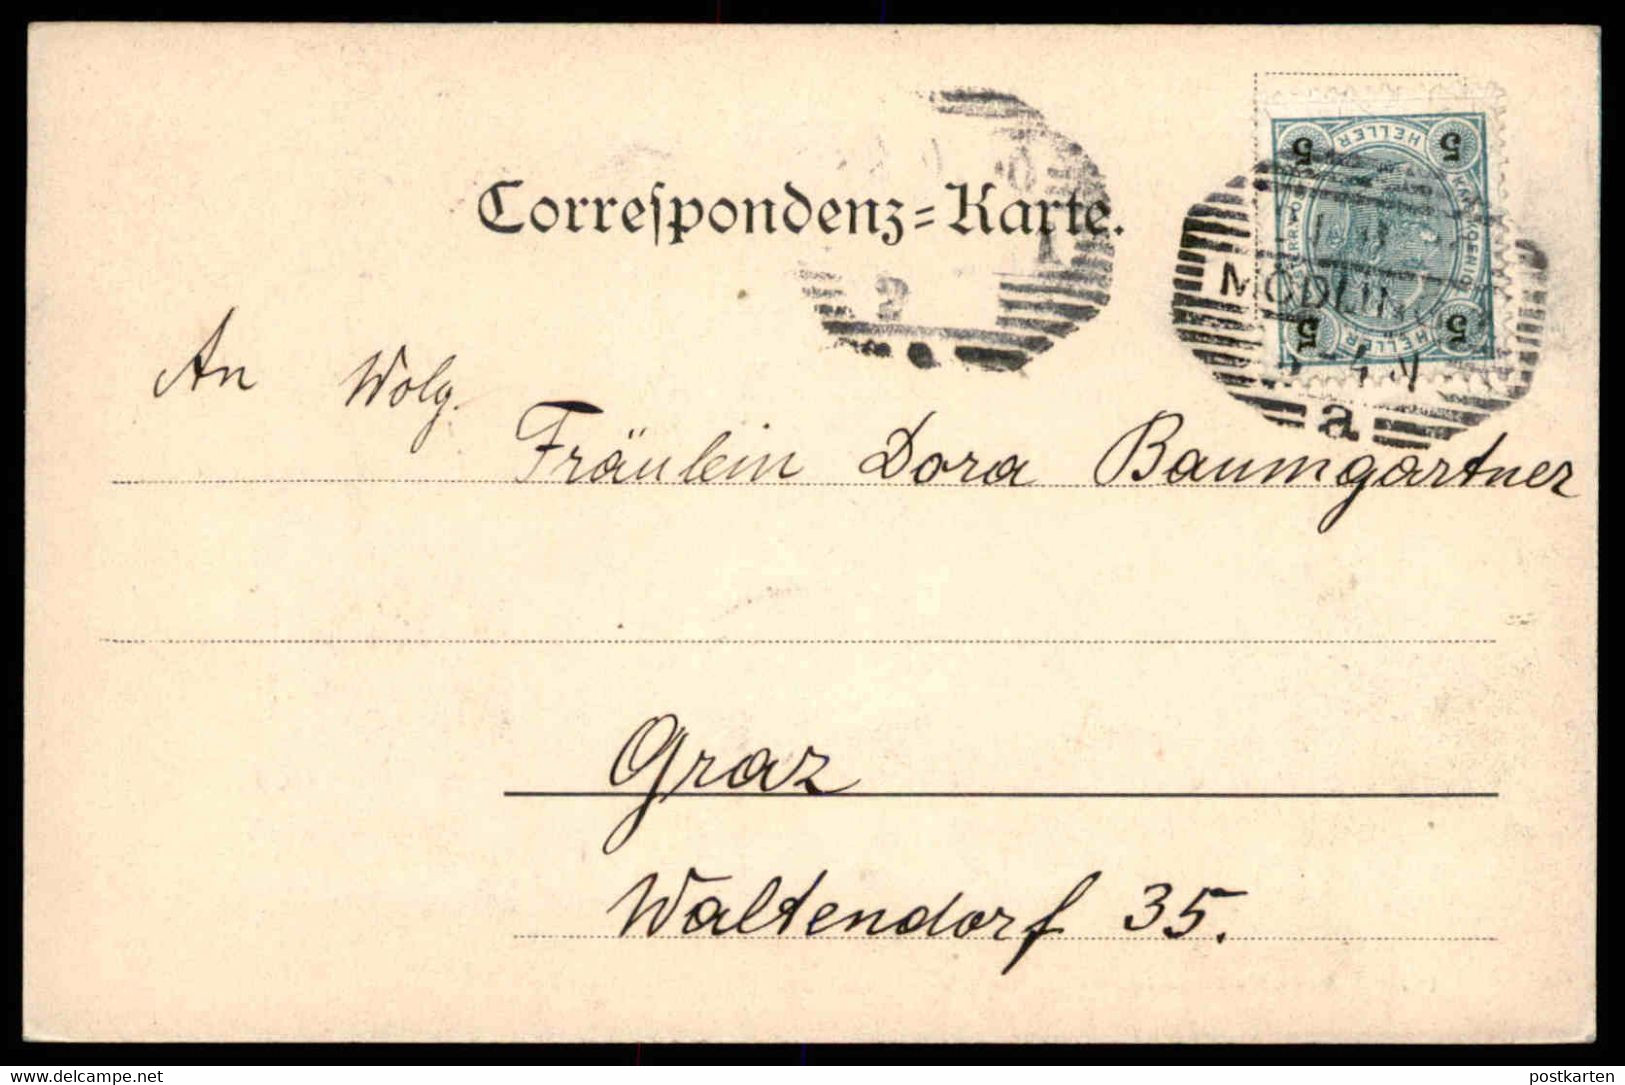 Correſpondenz=Karte.
5 HELLER 5
5 HELLER 5
MÖDLING
a
2
An Wolg.
Fräulein Dora Baumgartner
Graz
Waltendorf 35.
www.delcampe.net
postkarten